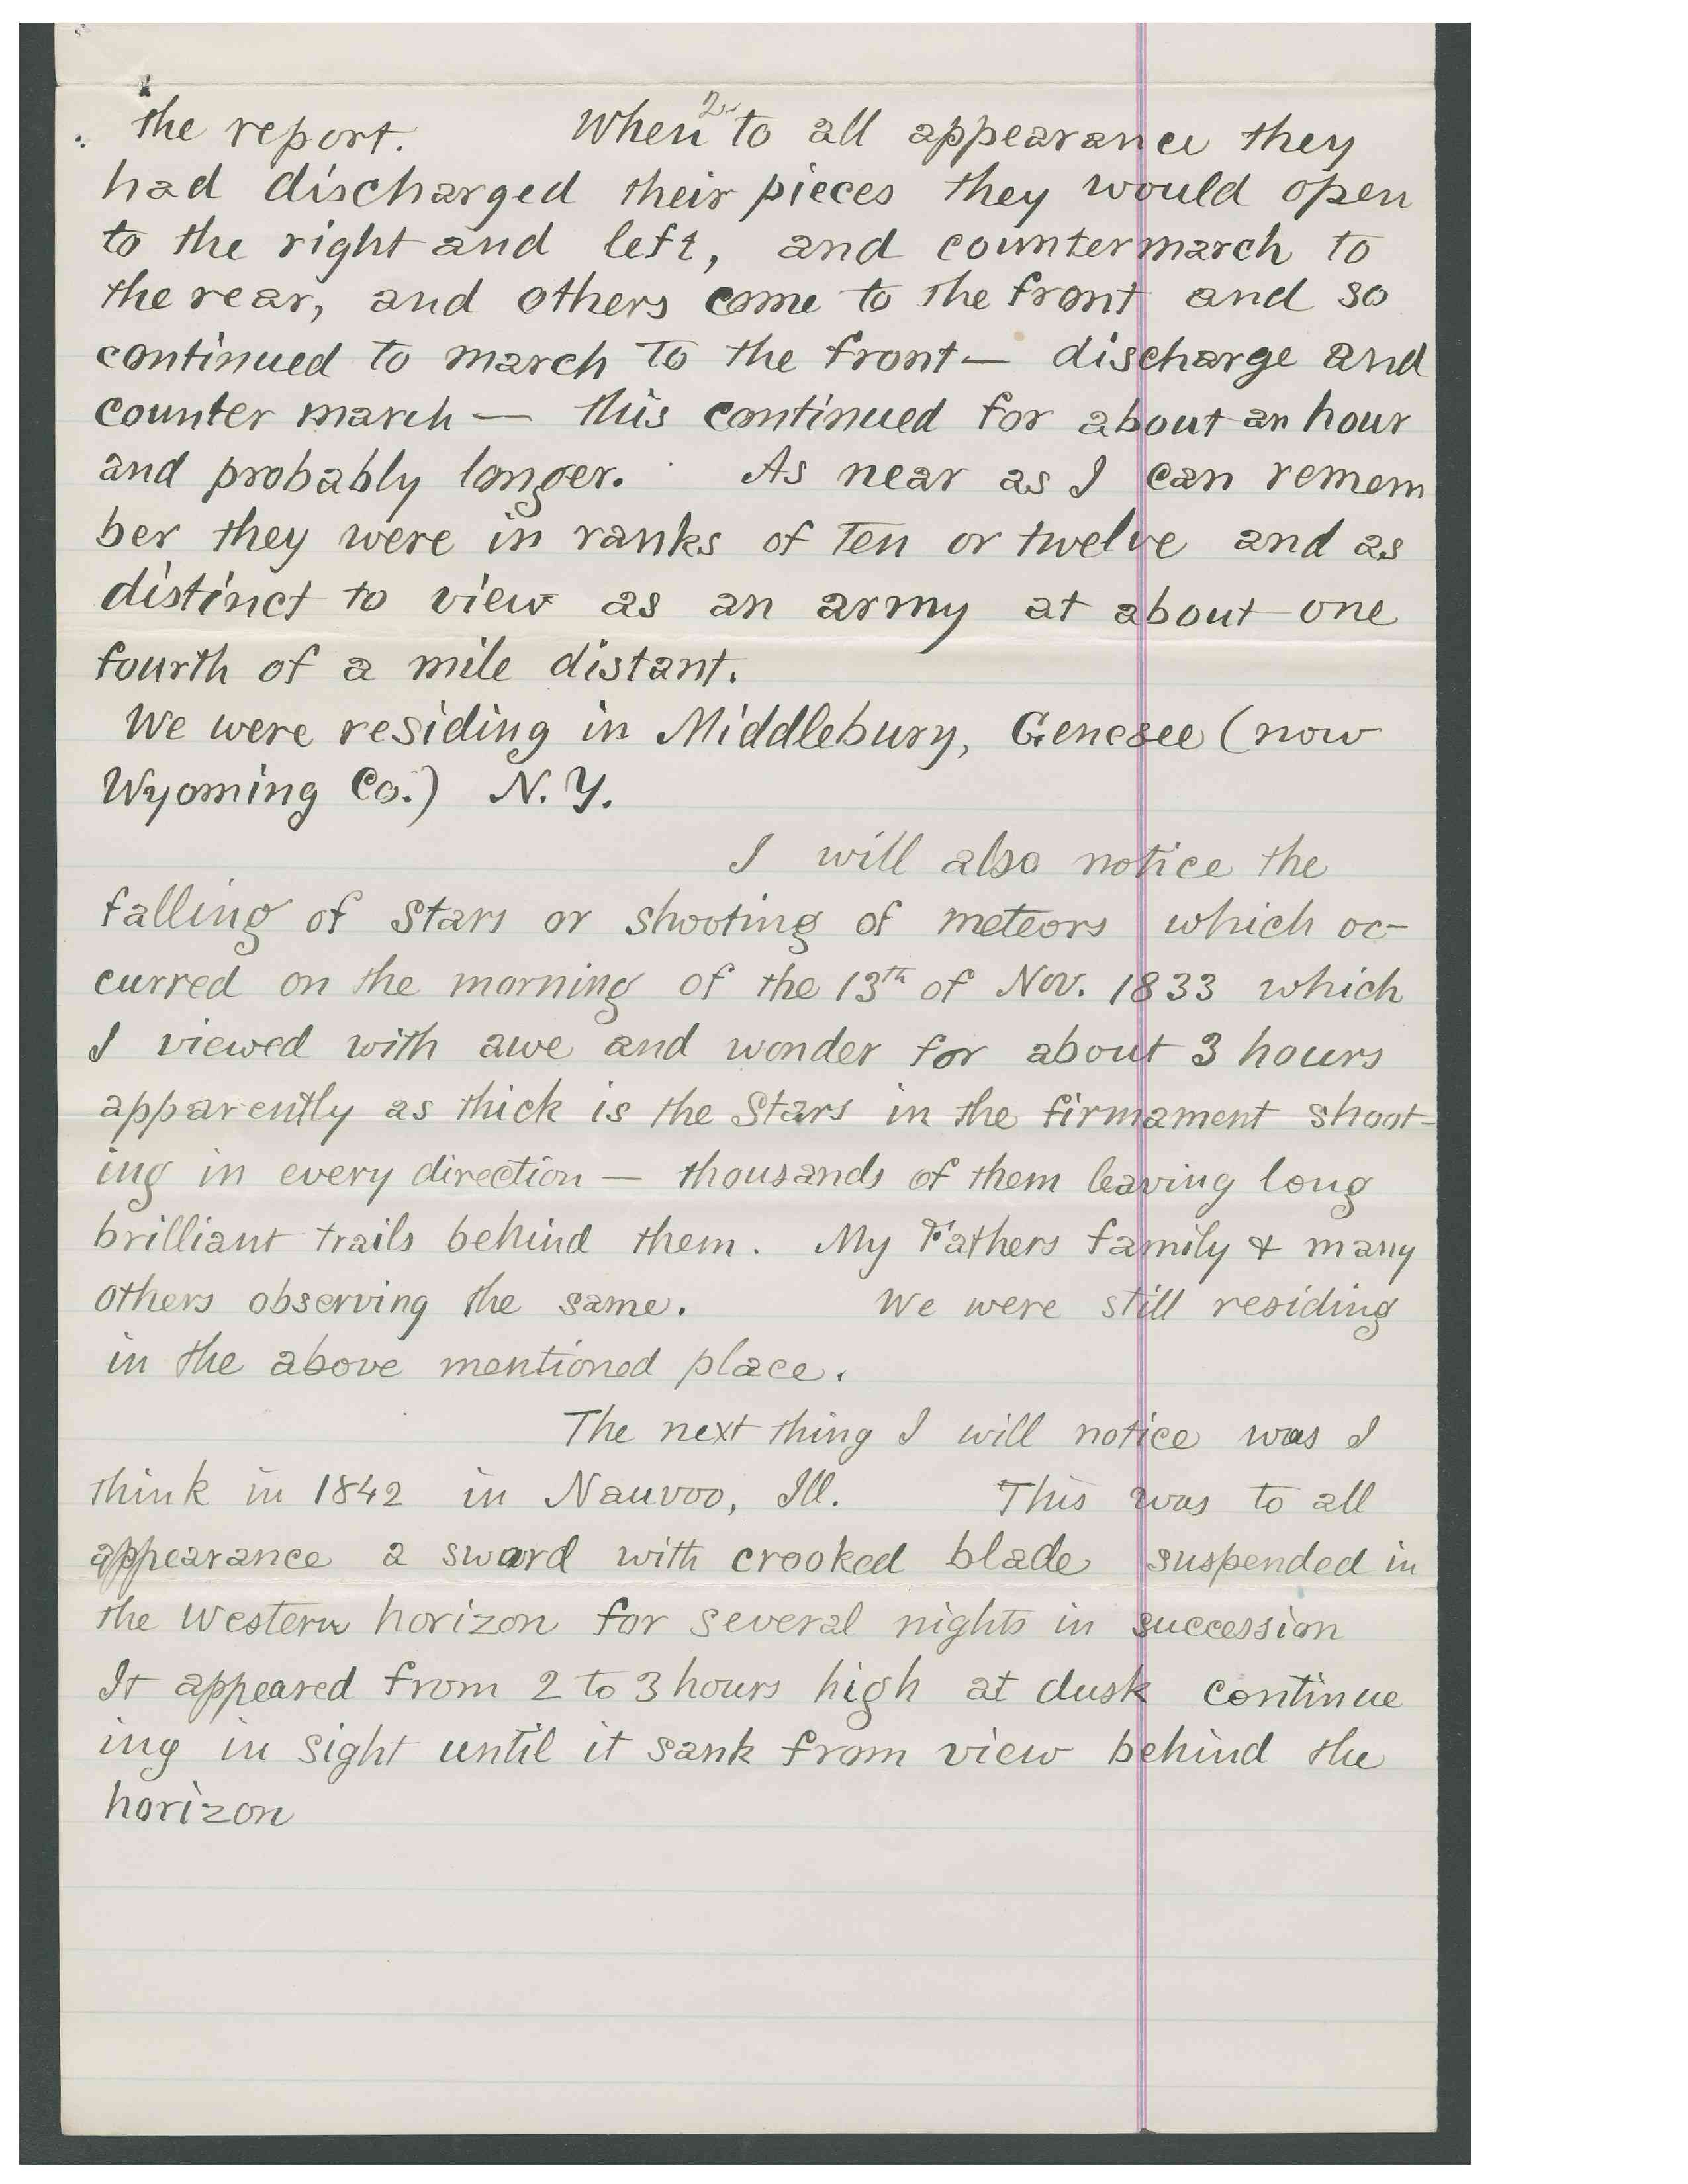 2
the report. When to all appearance they
had discharged their pieces they would open
to the right and left, and countermarch to
the rear, and others come to the front and so
continued to march to the front — discharge and
counter march — this continued for about an hour
and probably longer. As near as I can remem
ber they were in ranks of ten or twelve and as
distinct to view as an army at about one
fourth of a mile distant.
We were residing in Middlebury, Genesee (now
Wyoming Co.) N.Y.
I will also notice the
falling of Stars or shooting of meteors which oc-
curred on the morning of the 13th of Nov. 1833 which
I viewed with awe and wonder for about 3 hours
apparently as thick is the Stars in the firmament shoot-
ing in every direction — thousands of them leaving long
brilliant trails behind them. My Fathers family & many
others observing the same. We were still residing
in the above mentioned place.
The next thing I will notice was I
think in 1842 in Nauvoo, Ill. This was to all
appearance a sword with crooked blade suspended in
the Western horizon for several nights in succession
It appeared from 2 to 3 hours high at dusk continue
ing in sight until it sank from view behind the
horizon